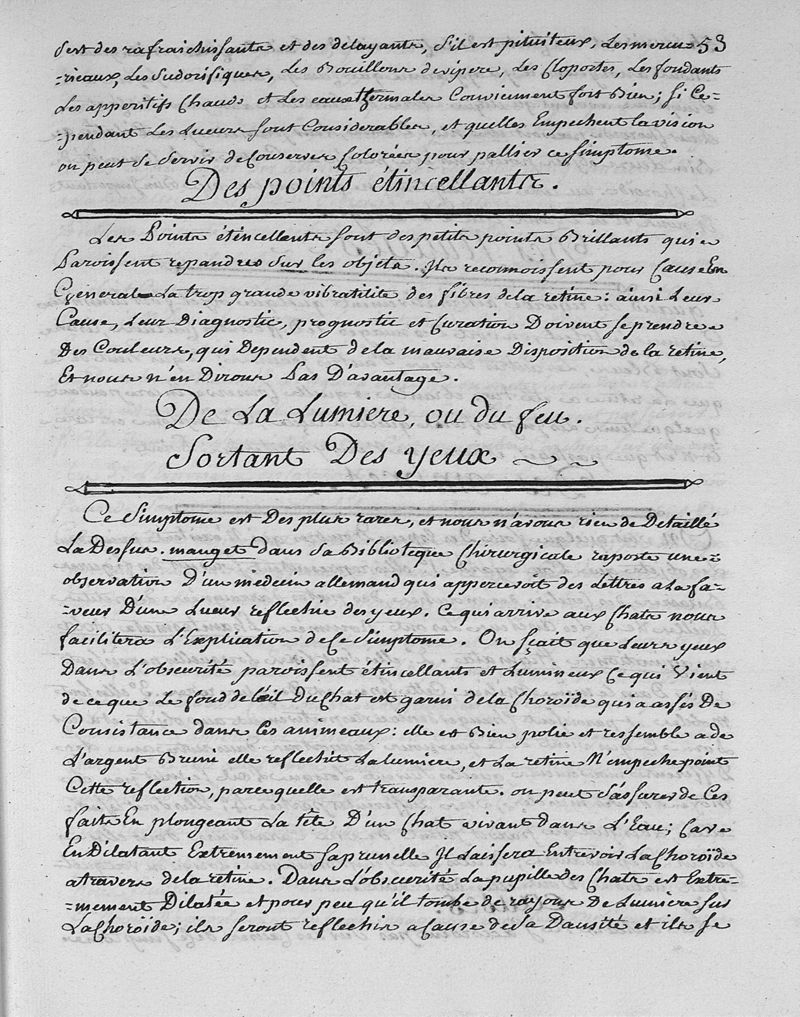 sert des rafraichissants et des delayants, s'il est pituiteux, Les mercu- 53
-rieaux, Les Sudorifiques, Les Bouillons de vipere, Les Cloportes, Les fondants
Les apperitifs Chauds et Les eaux thermales Conviennent fort Bien; Si Ce-
-pendant Les Lueurs sont Considerables, et quelles Empechent la vision
on peut se servir de Conserves Colorées pour pallier ce simptome.
Des points étincellants.
Les Points étincellents sont des petits points Brillants qui
Paroissent repandues sur les objets. Ils reconnoissent pour Cause En
Général La trop grande vibratilité des fibres de la retine: ainsi Leur
Cause, Leur Diagnostic, prognostic et Curation Doivent se prendre
Des Couleurs, qui Dependent de la mauvaise Disposition de la retine,
Et nous n'en Dirons Pas D'avantage.
De La Lumiere, ou du feu.
Sortant Des yeux
Ce Simptome est Des plus rares, et nous n'avons rien de Detaillé
La Dessus. manget dans sa Biblioteque Chirurgicale raporte une
observation D'un medecin allemand qui appercevoit des Lettres a La fa-
-veur D'une Lueur reflechie des yeux. Ce qui arrive aux Chats nous
facilitera L'Explication de Ce Simptome. On sçait que Leurs yeux
Dans L'obscurité paroissent étincellants et Lumineux Ce qui Vient
de ce que Le fond de l'œil Du Chat est garni de la Choroïde qui a assés De
Consistance dans les animeaux: elle est Bien polie et ressemble a de
L'argent Bruni elle reflechit La lumiere, et La retine N'empeche point
Cette reflection, parcequelle est transparante. on peut s'assurer de Ces
faits En plongeant La tête D'un Chat vivant dans L'Eau; Car
En Dilatant Extremement sa prunelle Il Laissera Entrevoir La Choroïde
a travers de la retine. Dans L'obscurité La pupille des Chats est Extre-
-mement Dilatée et pour peu qu'il tombe de rayons De Lumiere sur
La Choroïde; ils seront reflechis a Cause de sa Dansité et ils se